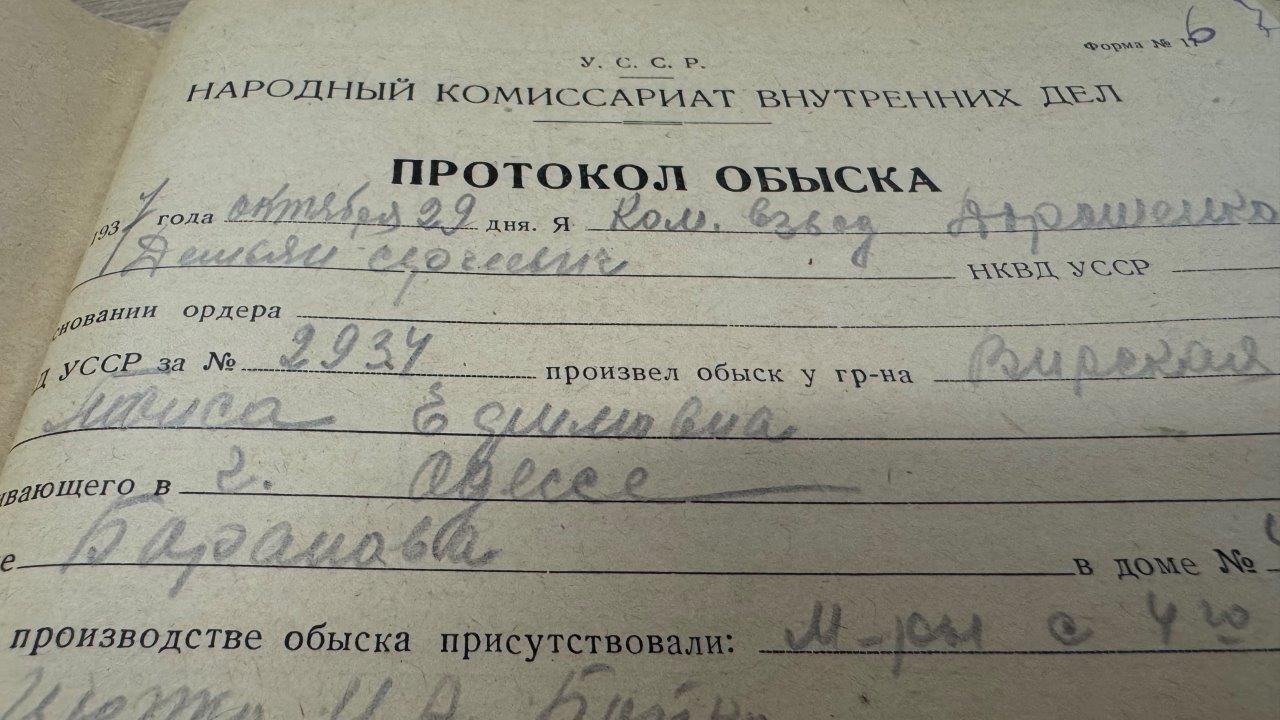 Форма № 17
6
У. С. С. Р.
НАРОДНЫЙ КОМИССАРИАТ ВНУТРЕННИХ ДЕЛ
ПРОТОКОЛ ОБЫСКА
1937 года октября 29 дня. Я Ком. взвод Дорошенко
Демьян НКВД УССР
сновании ордера
Д УССР за № 2934 произвел обыск у гр-на Вирская
в г. Одессе
ивающего в г. Одессе
е Баранова в доме №
производстве обыска присутствовали: М-ры с 4го